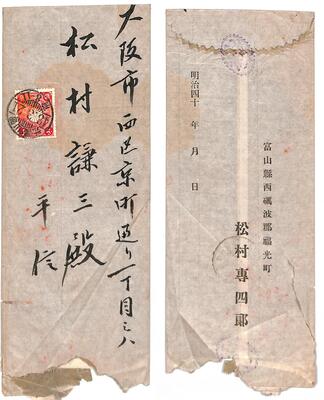 大阪市西区京町通リ一丁目三八
松村謙三殿
平信
明治四十 年 月 日
富山縣西礪波郡福光町
松村專四郎